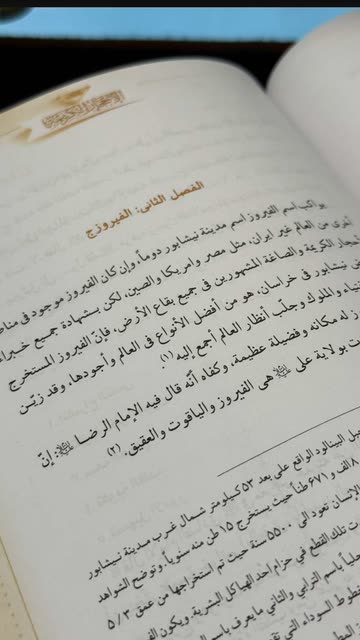 الأحجار الكريمة
الفصل الثاني: الفيروزج
يواكب اسم الفيروز اسم مدينة نيشابور دوماً، وإن كان الفيروز موجود في
أخرى من العالم غير ايران، مثل مصر وامريكا والصين، لكن بشهادة جميع
الكريمة والصاغة المشهورين في جميع بقاع الأرض، فإنّ الفيروز المستخرج
نيشابور في خراسان، هو من أفضل الأنواع في العالم وأجودها، وقد زيّن
والملوك وجلب أنظار العالم أجمع إليه(١).
له مكانه وفضيلة عظيمة، وكفاه أنّه قال فيه الإمام الرضا ﷺ: إنّ
بولاية على ﷺ هي الفيروز والياقوت والعقيق. (٢)
البينالود الواقع على بعد ٥٣ كيلومتر شمال غرب مدينة نيشابور
و ٦٧١ طناً حيث يستخرج ١٥ طن منه سنوياً، وتوضح الشواهد
الانسان تعود الى ٥٥٠٠ سنة حيث تم استخراجها من عمق ٥/٣
تلك القطع في حزام احد الهياكل البشرية، ويكون
باسم الترابي والثاني ما يعرف باسم
السوداء التي